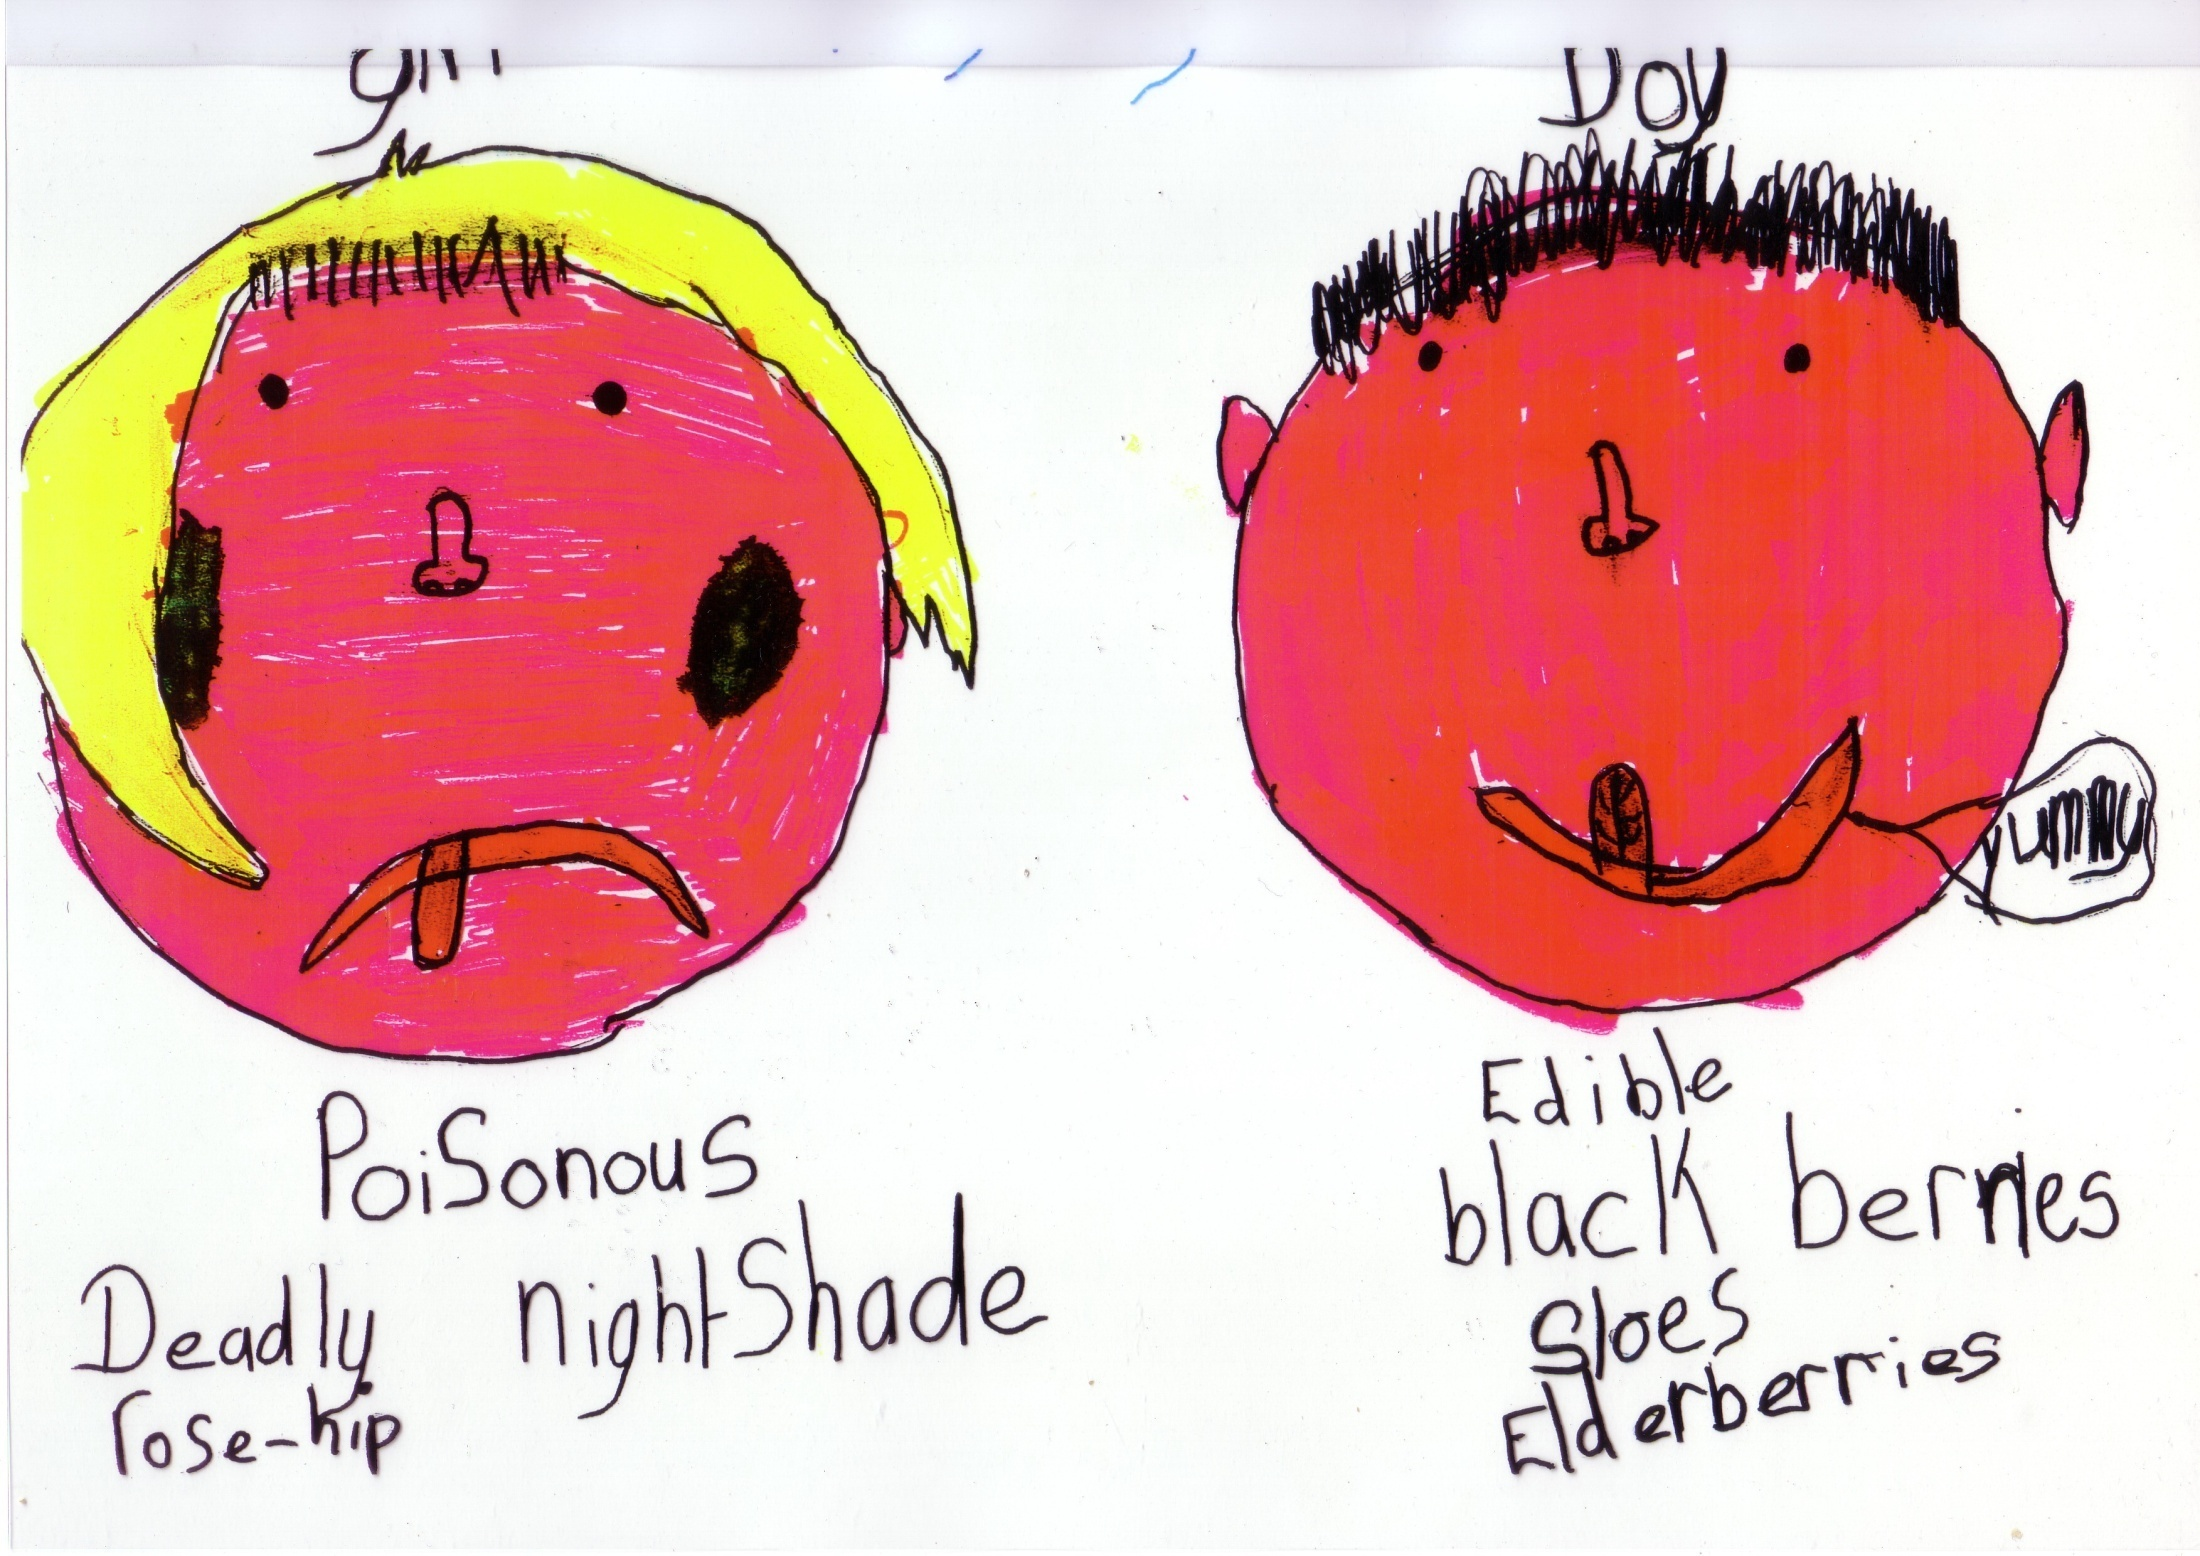 girl
Boy
yummy
Poisonous
Deadly nightShade
rose-hip
Edible
black berries
Sloes
Elderberries